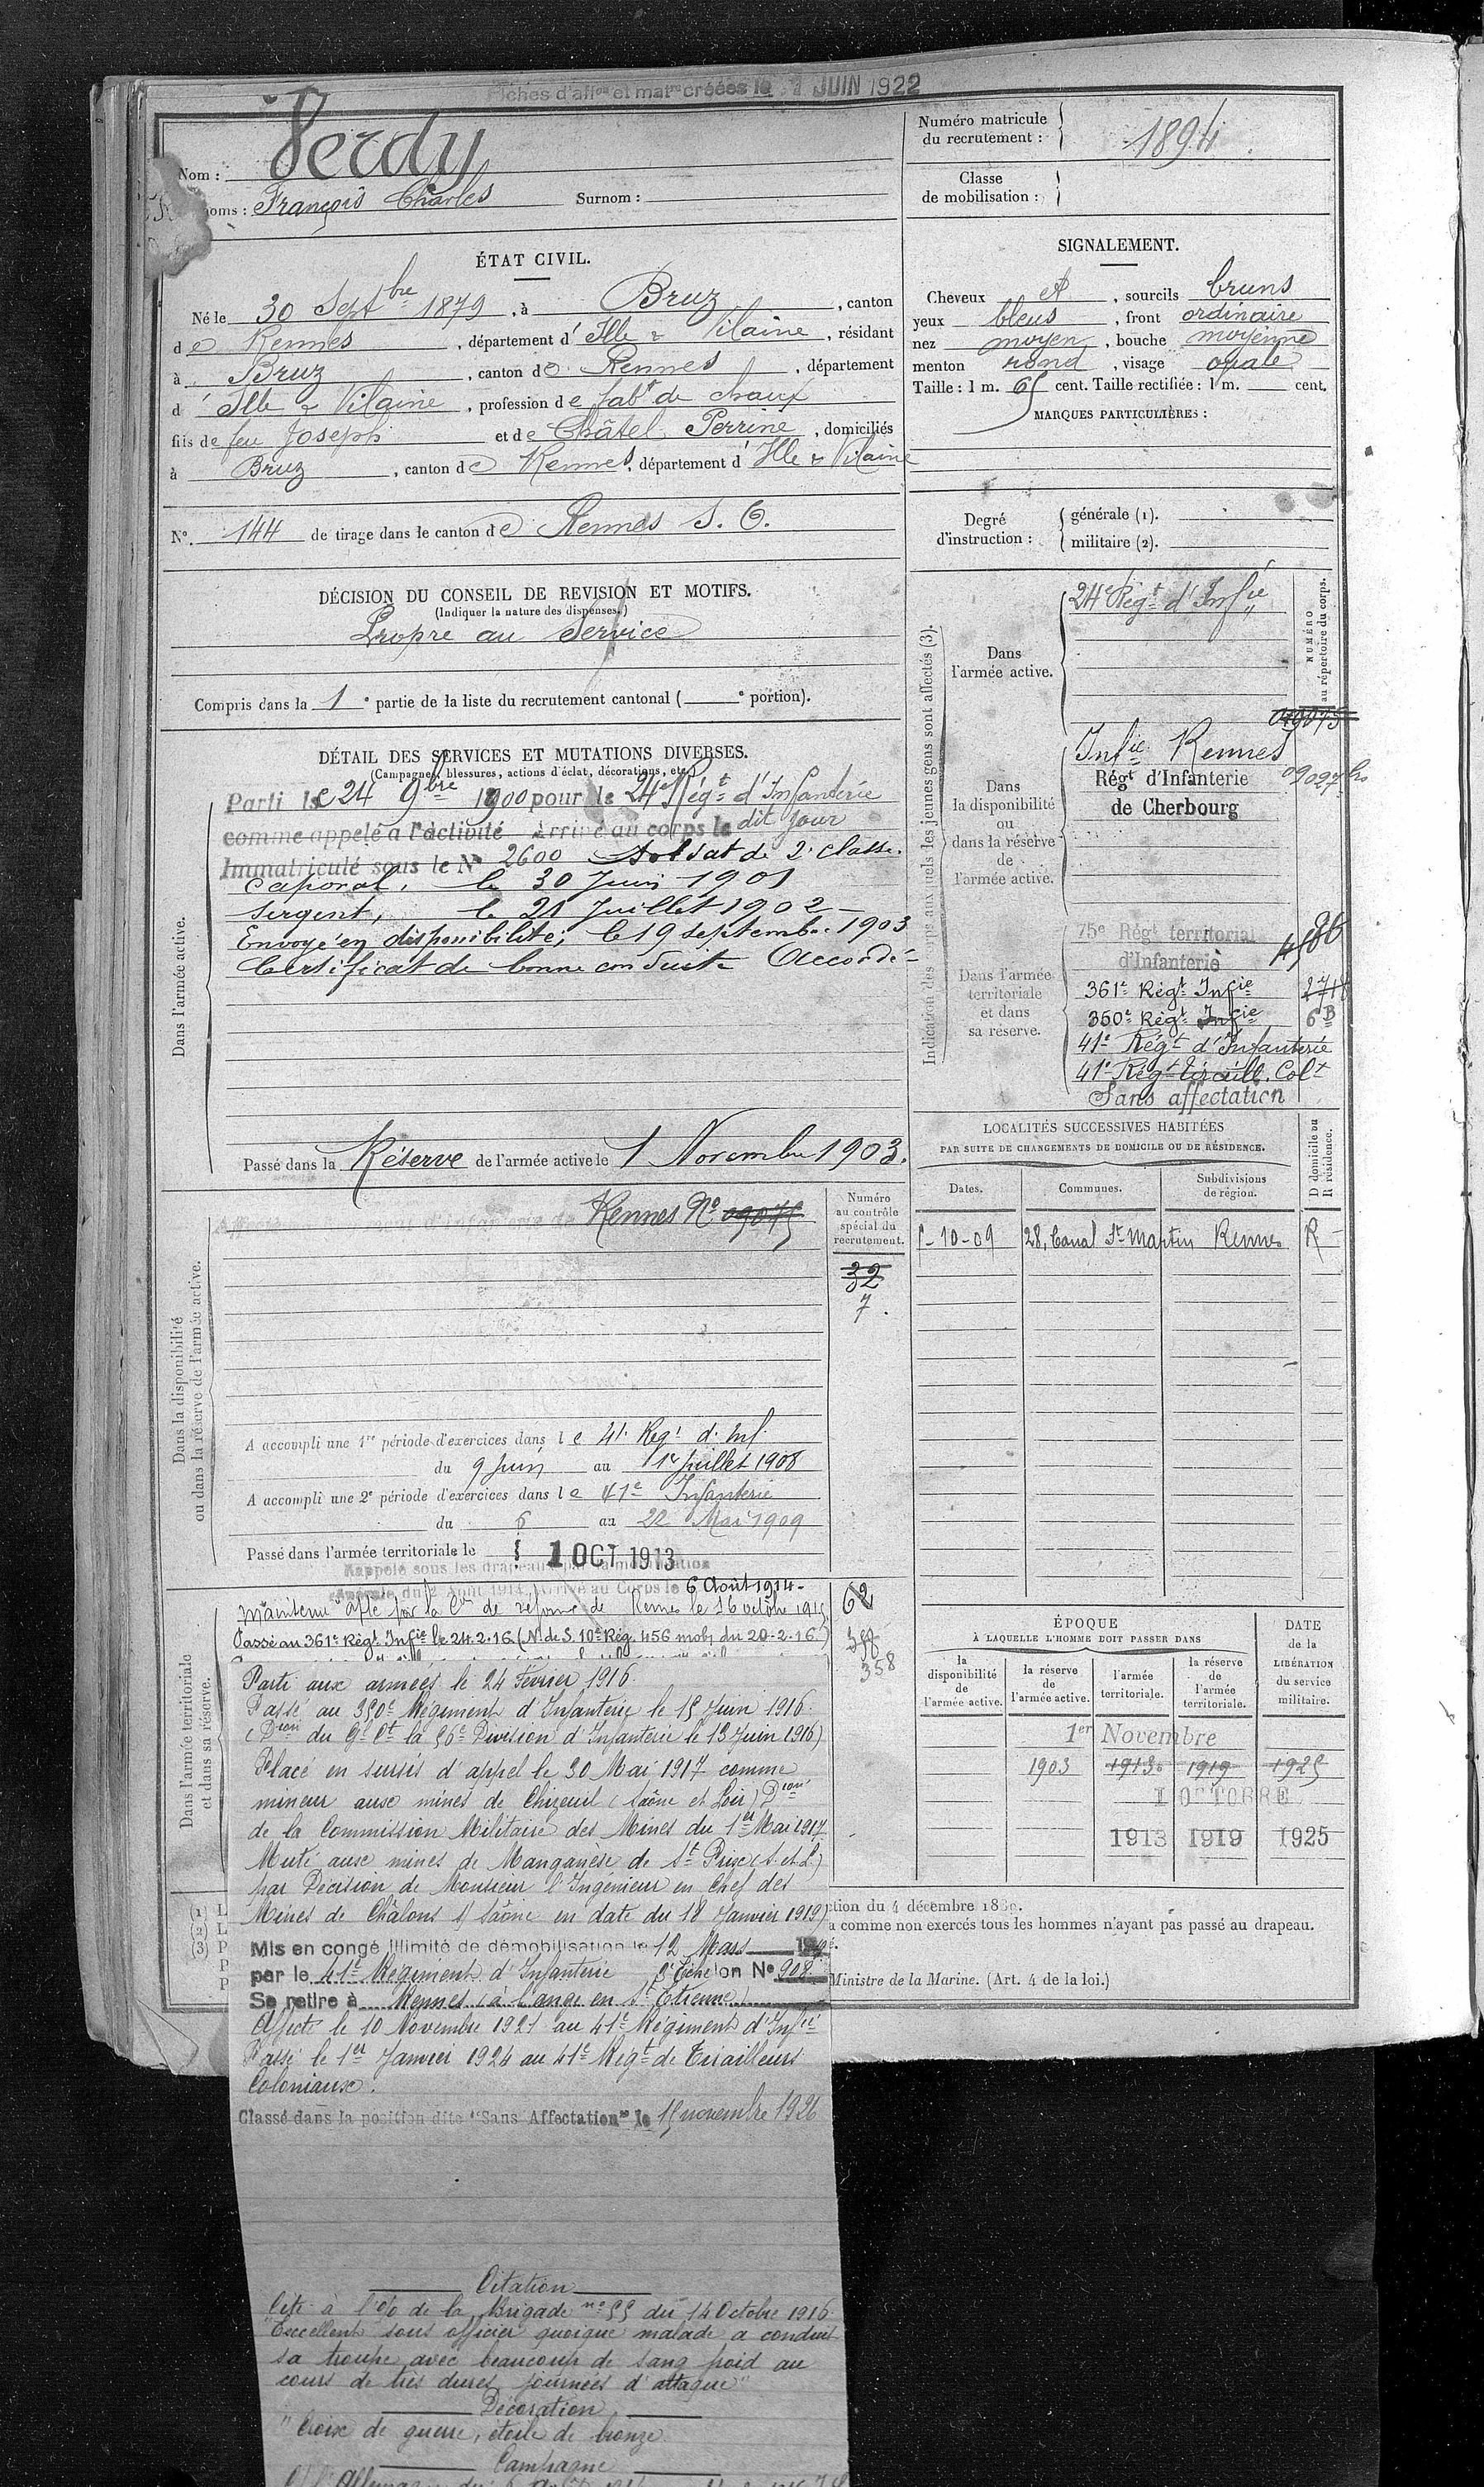 Fiches d'aff<sup>on</sup> et mat<sup>re</sup> créées le 1 JUIN 1922
Nom : Verdy
François Charles Surnom :
Numéro matricule du recrutement : 1894
Classe de mobilisation :
ÉTAT CIVIL.
Né le 30 Septbre 1879, à Bruz, canton
de Rennes, département d'Ille & Vilaine, résidant
à Bruz, canton de Rennes, département
d'Ille & Vilaine, profession de fabt de chaux
fils de feu Joseph et de Châtel Perrine, domiciliés
à Bruz, canton de Rennes, département d'Ille & Vilaine
N°. 144 de tirage dans le canton de Rennes S. O.
SIGNALEMENT.
Cheveux et, sourcils bruns
yeux bleus, front ordinaire
nez moyen, bouche moyenne
menton rond, visage ovale
Taille : 1 m. 65 cent. Taille rectifiée : 1 m. cent.
MARQUES PARTICULIÈRES :
Degré d'instruction : générale (1).
militaire (2).
DÉCISION DU CONSEIL DE REVISION ET MOTIFS.
(Indiquer la nature des dispenses.)
Propre au Service
Compris dans la 1e partie de la liste du recrutement cantonal ( e portion).
DÉTAIL DES SERVICES ET MUTATIONS DIVERSES.
(Campagnes, blessures, actions d'éclat, décorations, etc.)
Dans l'armée active.
Parti le 24 9bre 1900 pour le 24e Régt d'Infanterie
comme appelé à l'activité Arrivé au corps le dit jour
Immatriculé sous le N° 2600 Soldat de 2e classe.
Caporal, le 30 Juin 1901
Sergent, le 21 Juillet 1902
Envoyé en disponibilité, le 19 septembre 1903
Certificat de bonne conduite Accordé
Passé dans la Réserve de l'armée active le 1 Novembre 1903.
Indication des corps auxquels les jeunes gens sont affectés (3).
NUMÉRO au répertoire du corps.
Dans l'armée active.
24e Régt d'Infie
09075
Dans la disponibilité ou dans la réserve de l'armée active.
Infie Rennes
Régt d'Infanterie
de Cherbourg
Dans l'armée territoriale et dans sa réserve.
75e Régt territorial
d'Infanterie
361e Régt Infie
350e Régt Infie
41e Régt d'Infanterie
41e Régt Tiraill. Colx
Sans affectation
LOCALITÉS SUCCESSIVES HABITÉES
PAR SUITE DE CHANGEMENTS DE DOMICILE OU DE RÉSIDENCE.
Dates. Communes. Subdivisions de région. D domicile ou R résidence.
-10-09 28, Canal St Martin Rennes R
Dans la disponibilité ou dans la réserve de l'armée active.
Rennes N° 09075
Numéro au contrôle spécial du recrutement.
32
7
A accompli une 1re période d'exercices dans le 41e Regt d'Inf.
du 9 Juin au 1er Juillet 1908
A accompli une 2e période d'exercices dans le 41e Infanterie
du 6 au 22 Mai 1909
Passé dans l'armée territoriale le 1 OCT 1913
Dans l'armée territoriale et dans sa réserve.
Rappelé sous les drapeaux par la mobilisation
générale du 2 Août 1914. Arrivé au Corps le 6 Août 1914-
62
Passé au 361e Régt Infie le 24.2.16. (N. de S. 10e Rég. 456 mob. du 20-2-16.)
358
Parti aux armées le 24 Février 1916.
Passé au 350e Régiment d'Infanterie le 15 Juin 1916.
(Dion du Gal Ct la 56e Division d'Infanterie le 13 Juin 1916)
Placé en sursis d'appel le 30 Mai 1917 comme
mineur aux mines de Chizeuil (Saône et Loir) Dion
de la Commission Militaire des Mines du 1er Mai 1917
Muté aux mines de Manganèse de St Prix (S. et L)
par Décision de Monsieur l'Ingénieur en Chef des
Mines de Châlons s/ Saône en date du 18 Janvier 1919)
Mis en congé illimité de démobilisation le 12 Mars
par le 41e Régiment d'Infanterie Echelon N° 908
Se retire à Rennes
Affecté le 10 Novembre 1921 au 41e Régiment d'Infie
Passé le 1er Janvier 1924 au 41e Régt de Tirailleurs
Coloniaux.
Classé dans la position dite "Sans Affectation" le 15 novembre 1926
ÉPOQUE
À LAQUELLE L'HOMME DOIT PASSER DANS
la disponibilité de l'armée active. la réserve de l'armée active. l'armée territoriale. la réserve de l'armée territoriale.
DATE de la LIBÉRATION du service militaire.
1er Novembre
1903 1913 1919 1925
1 OCTOBRE
1913 1919 1925
ction du 4 décembre 1889.
a comme non exercés tous les hommes n'ayant pas passé au drapeau.
Ministre de la Marine. (Art. 4 de la loi.)
Citation
Cité à l'o/o de la Brigade n° 55 du 14 Octobre 1916
"Excellent sous officier quoique malade a conduit
sa troupe avec beaucoup de sang froid au
cours de très dures journées d'attaque"
Décoration
"Croix de guerre, étoile de bronze
Campagne